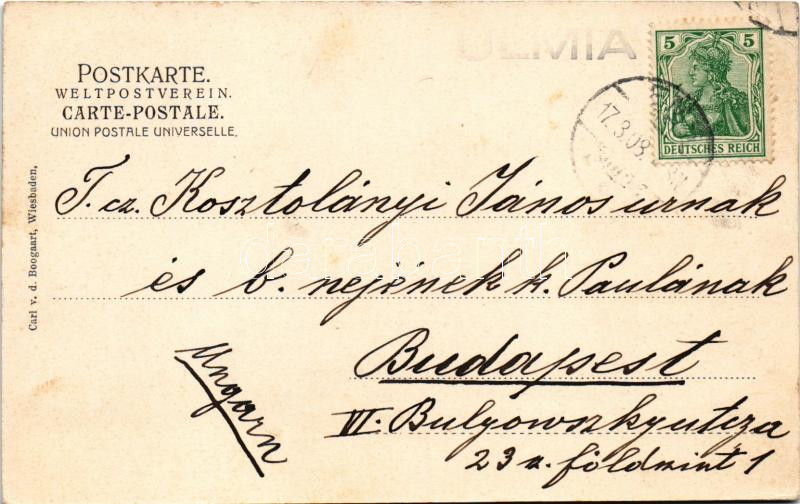 ULMIA
5 5
DEUTSCHES REICH
17.3.08.
POSTKARTE.
WELTPOSTVEREIN.
CARTE-POSTALE.
UNION POSTALE UNIVERSELLE.
Carl v. d. Boogaart, Wiesbaden.
T. cz. Kosztolányi János urnak
és b. nejének k. Paulának
Budapest
Ungarn
VI. Bulyowszkyutcza
23 z. földszint 1
darabanth